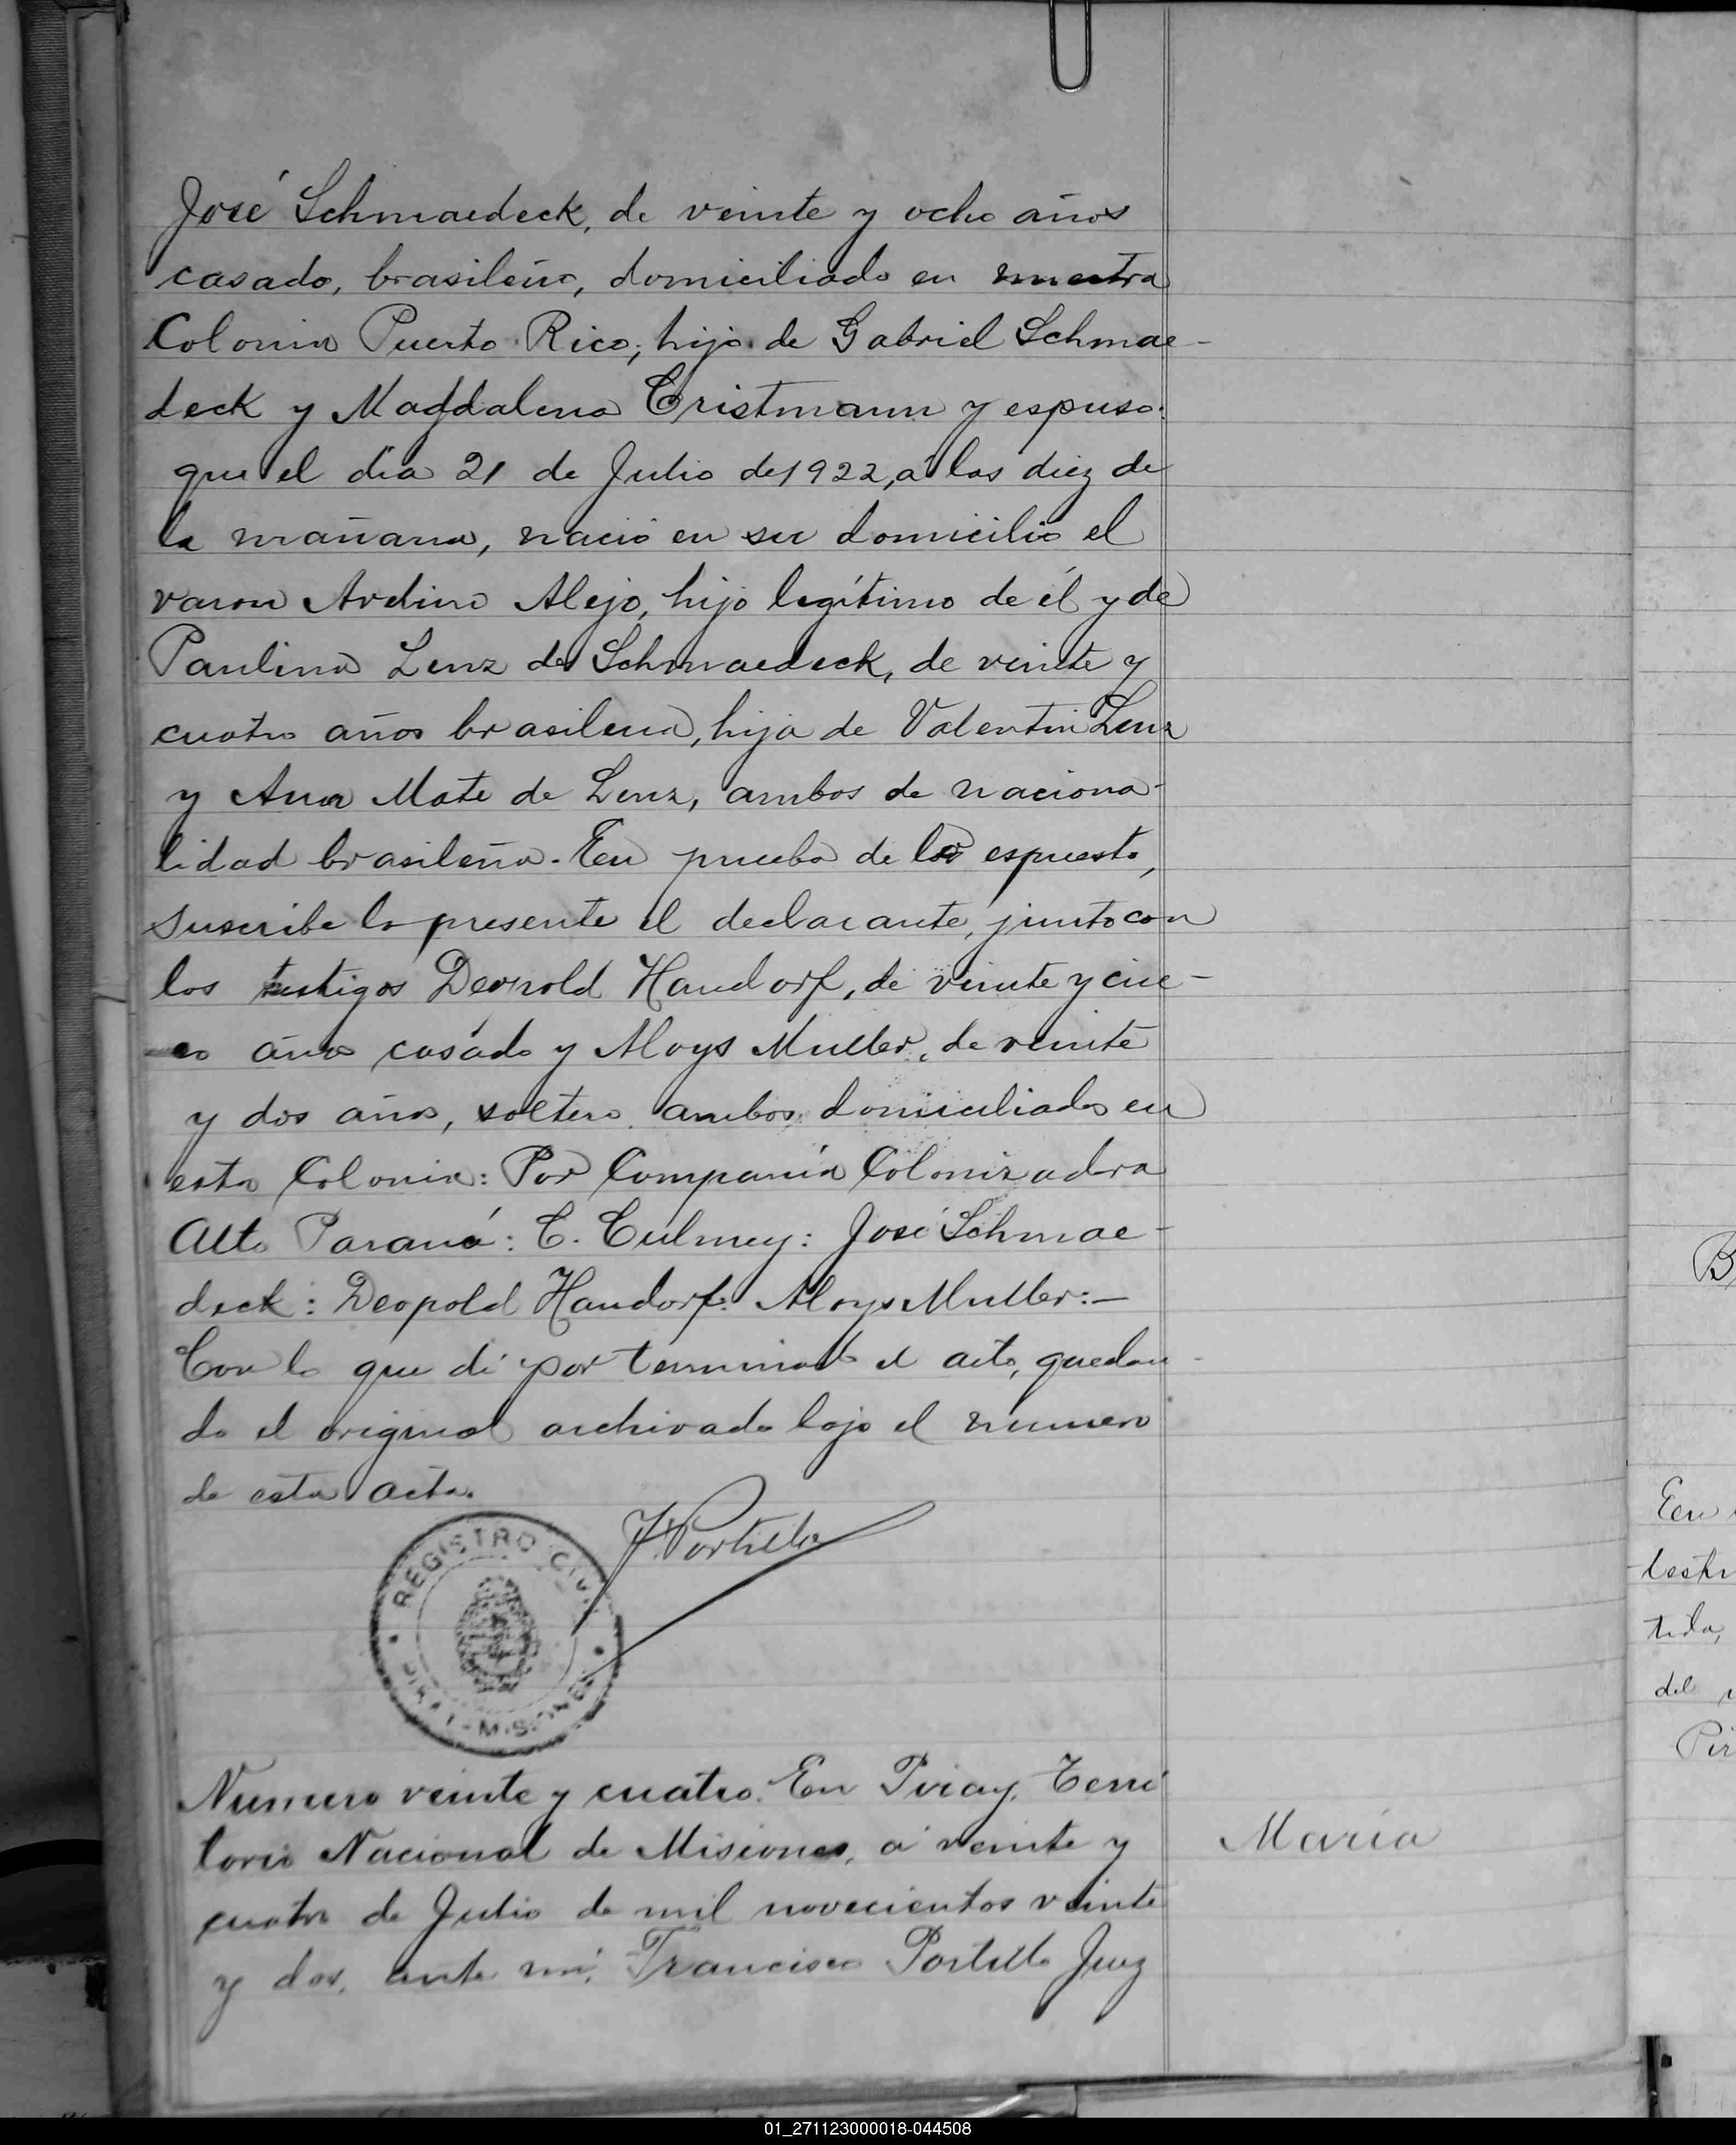 José Schmaedeck, de veinte y ocho años
casado, brasileño, domiciliado en nuestra
Colonia Puerto Rico; hijo de Gabriel Schmae-
deck y Magdalena Cristmann y espuso:
que el dia 21 de Julio de 1922, á las diez de
la mañana, nació en su domicilio el
varon Avelino Alejo, hijo legítimo de él y de
Paulina Lenz de Schmaedeck, de veinte y
cuatro años brasilena, hija de Valentin Lenz
y Ana Mate de Lenz, ambos de naciona-
lidad brasileña. En prueba de lo espuesto,
suscribe la presente el declarante, junto con
los testigos Leopold Handorf, de veinte y cin-
co años casado y Aloys Muller, de veinte
y dos años, soltero, ambos domiciliados en
esta Colonia: Por Compania Colonizadora
Alto Paraná: C. Culmey: José Schmae-
deck: Leopold Handorf: Aloys Muller:—
Con lo que dí por terminado el acto, quedan-
do el original archivado bajo el numero
de esta acta.
F. Portillo
REGISTRO CIVIL
PIRAY - MISIONES
Numero veinte y cuatro: En Piray, Terri
torio Nacional de Misiones, á veinte y
cuatro de Julio de mil novecientos veinte
y dos, ante mí, Francisco Portillo Juez
María
B
En
testi
tida,
del
Pir
01_271123000018-044508